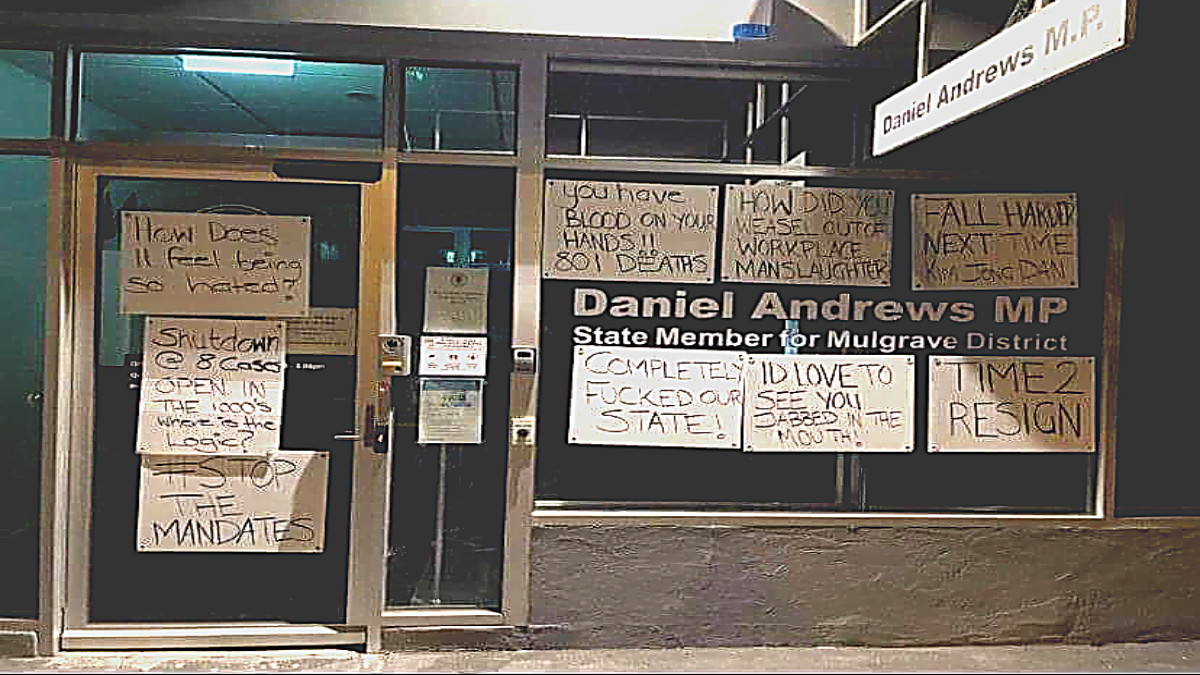 Daniel Andrews M.P.
How Does
It feel being
so hated?
Shutdown
@ 8 Cases
OPEN IN
THE 1000's
where is the
Logic?
#STOP
THE
MANDATES
you have
BLOOD ON YOUR
HANDS!!
801 DEATHS
HOW DID YOU
WEASEL OUT OF
WORKPLACE
MANSLAUGHTER
FALL HARDER
NEXT TIME
KIM JONG DAN
Daniel Andrews MP
State Member for Mulgrave District
COMPLETELY
FUCKED OUR
STATE!
ID LOVE TO
SEE YOU
JABBED IN THE
MOUTH!
TIME 2
RESIGN